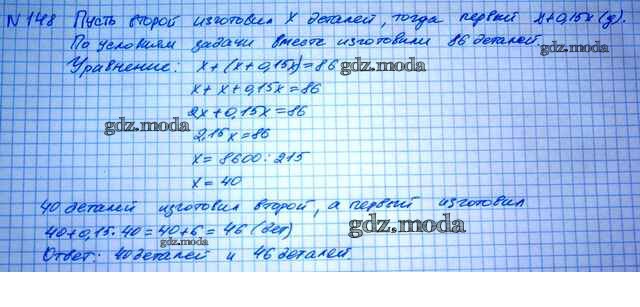 №148 Пусть второй изготовил x деталей, тогда первый x+0,15x (д).
По условиям задачи вместе изготовили 86 деталей.
gdz.moda
Уравнение: x+(x+0,15x)=86
gdz.moda
x+x+0,15x=86
2x+0,15x=86
gdz.moda
2,15x=86
x=8600:215
x=40
40 деталей изготовил второй, а первый изготовил
gdz.moda
40+0,15·40=40+6=46 (дет)
gdz.moda
Ответ: 40 деталей и 46 деталей.